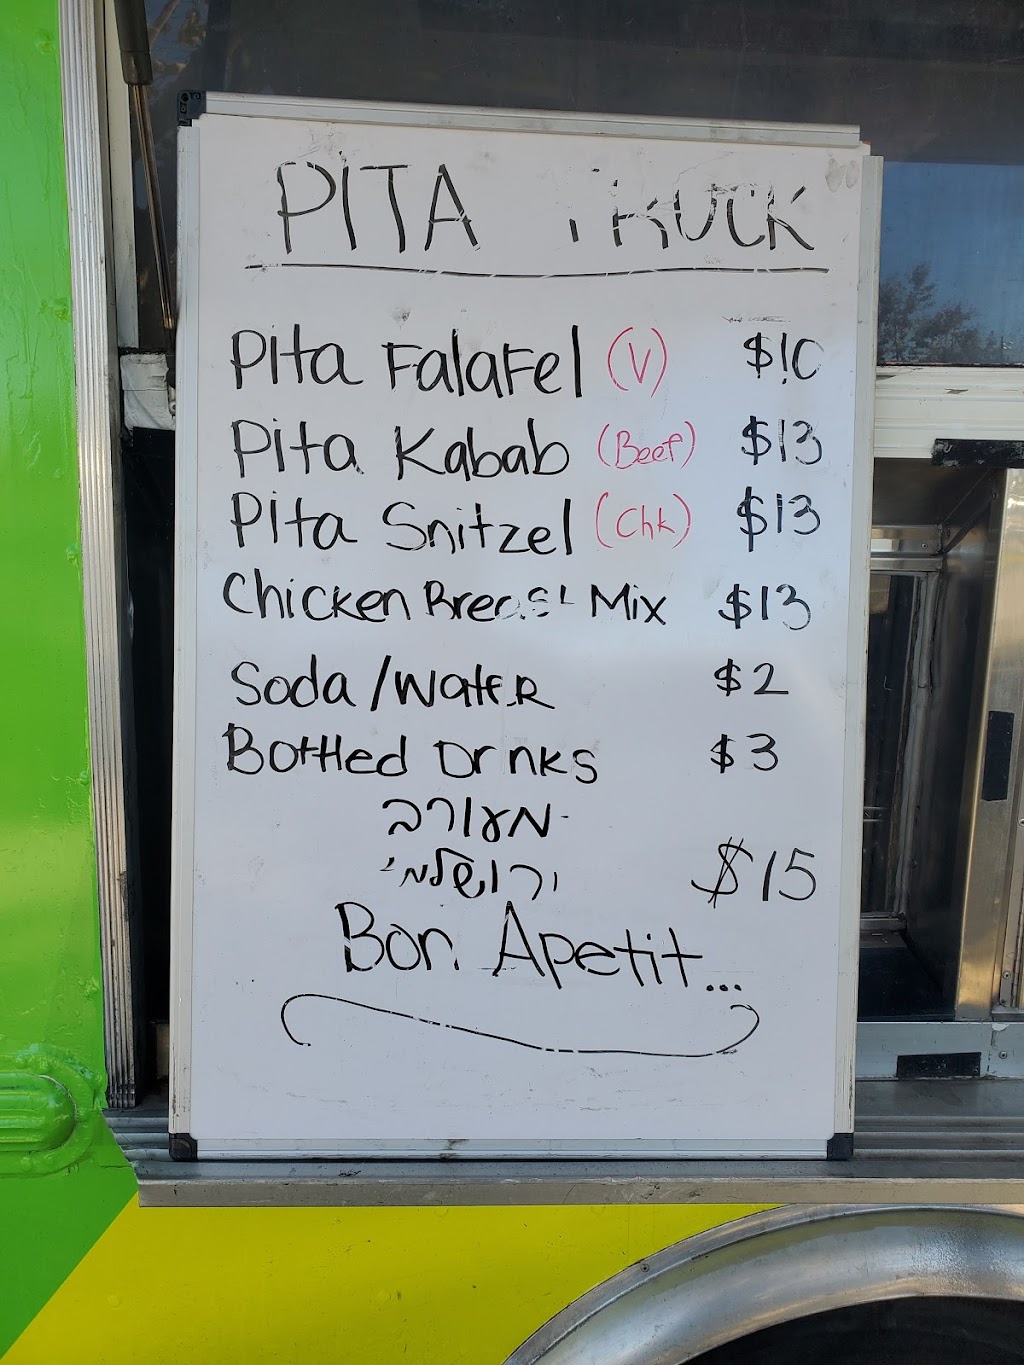 PITA TRUCK
Pita Falafel (V) $10
Pita Kabab (Beef) $13
Pita Snitzel (Chk) $13
Chicken Breast Mix $13
Soda/Water $2
Bottled Drinks $3
מעורב
ירושלמי $15
Bon Apetit...